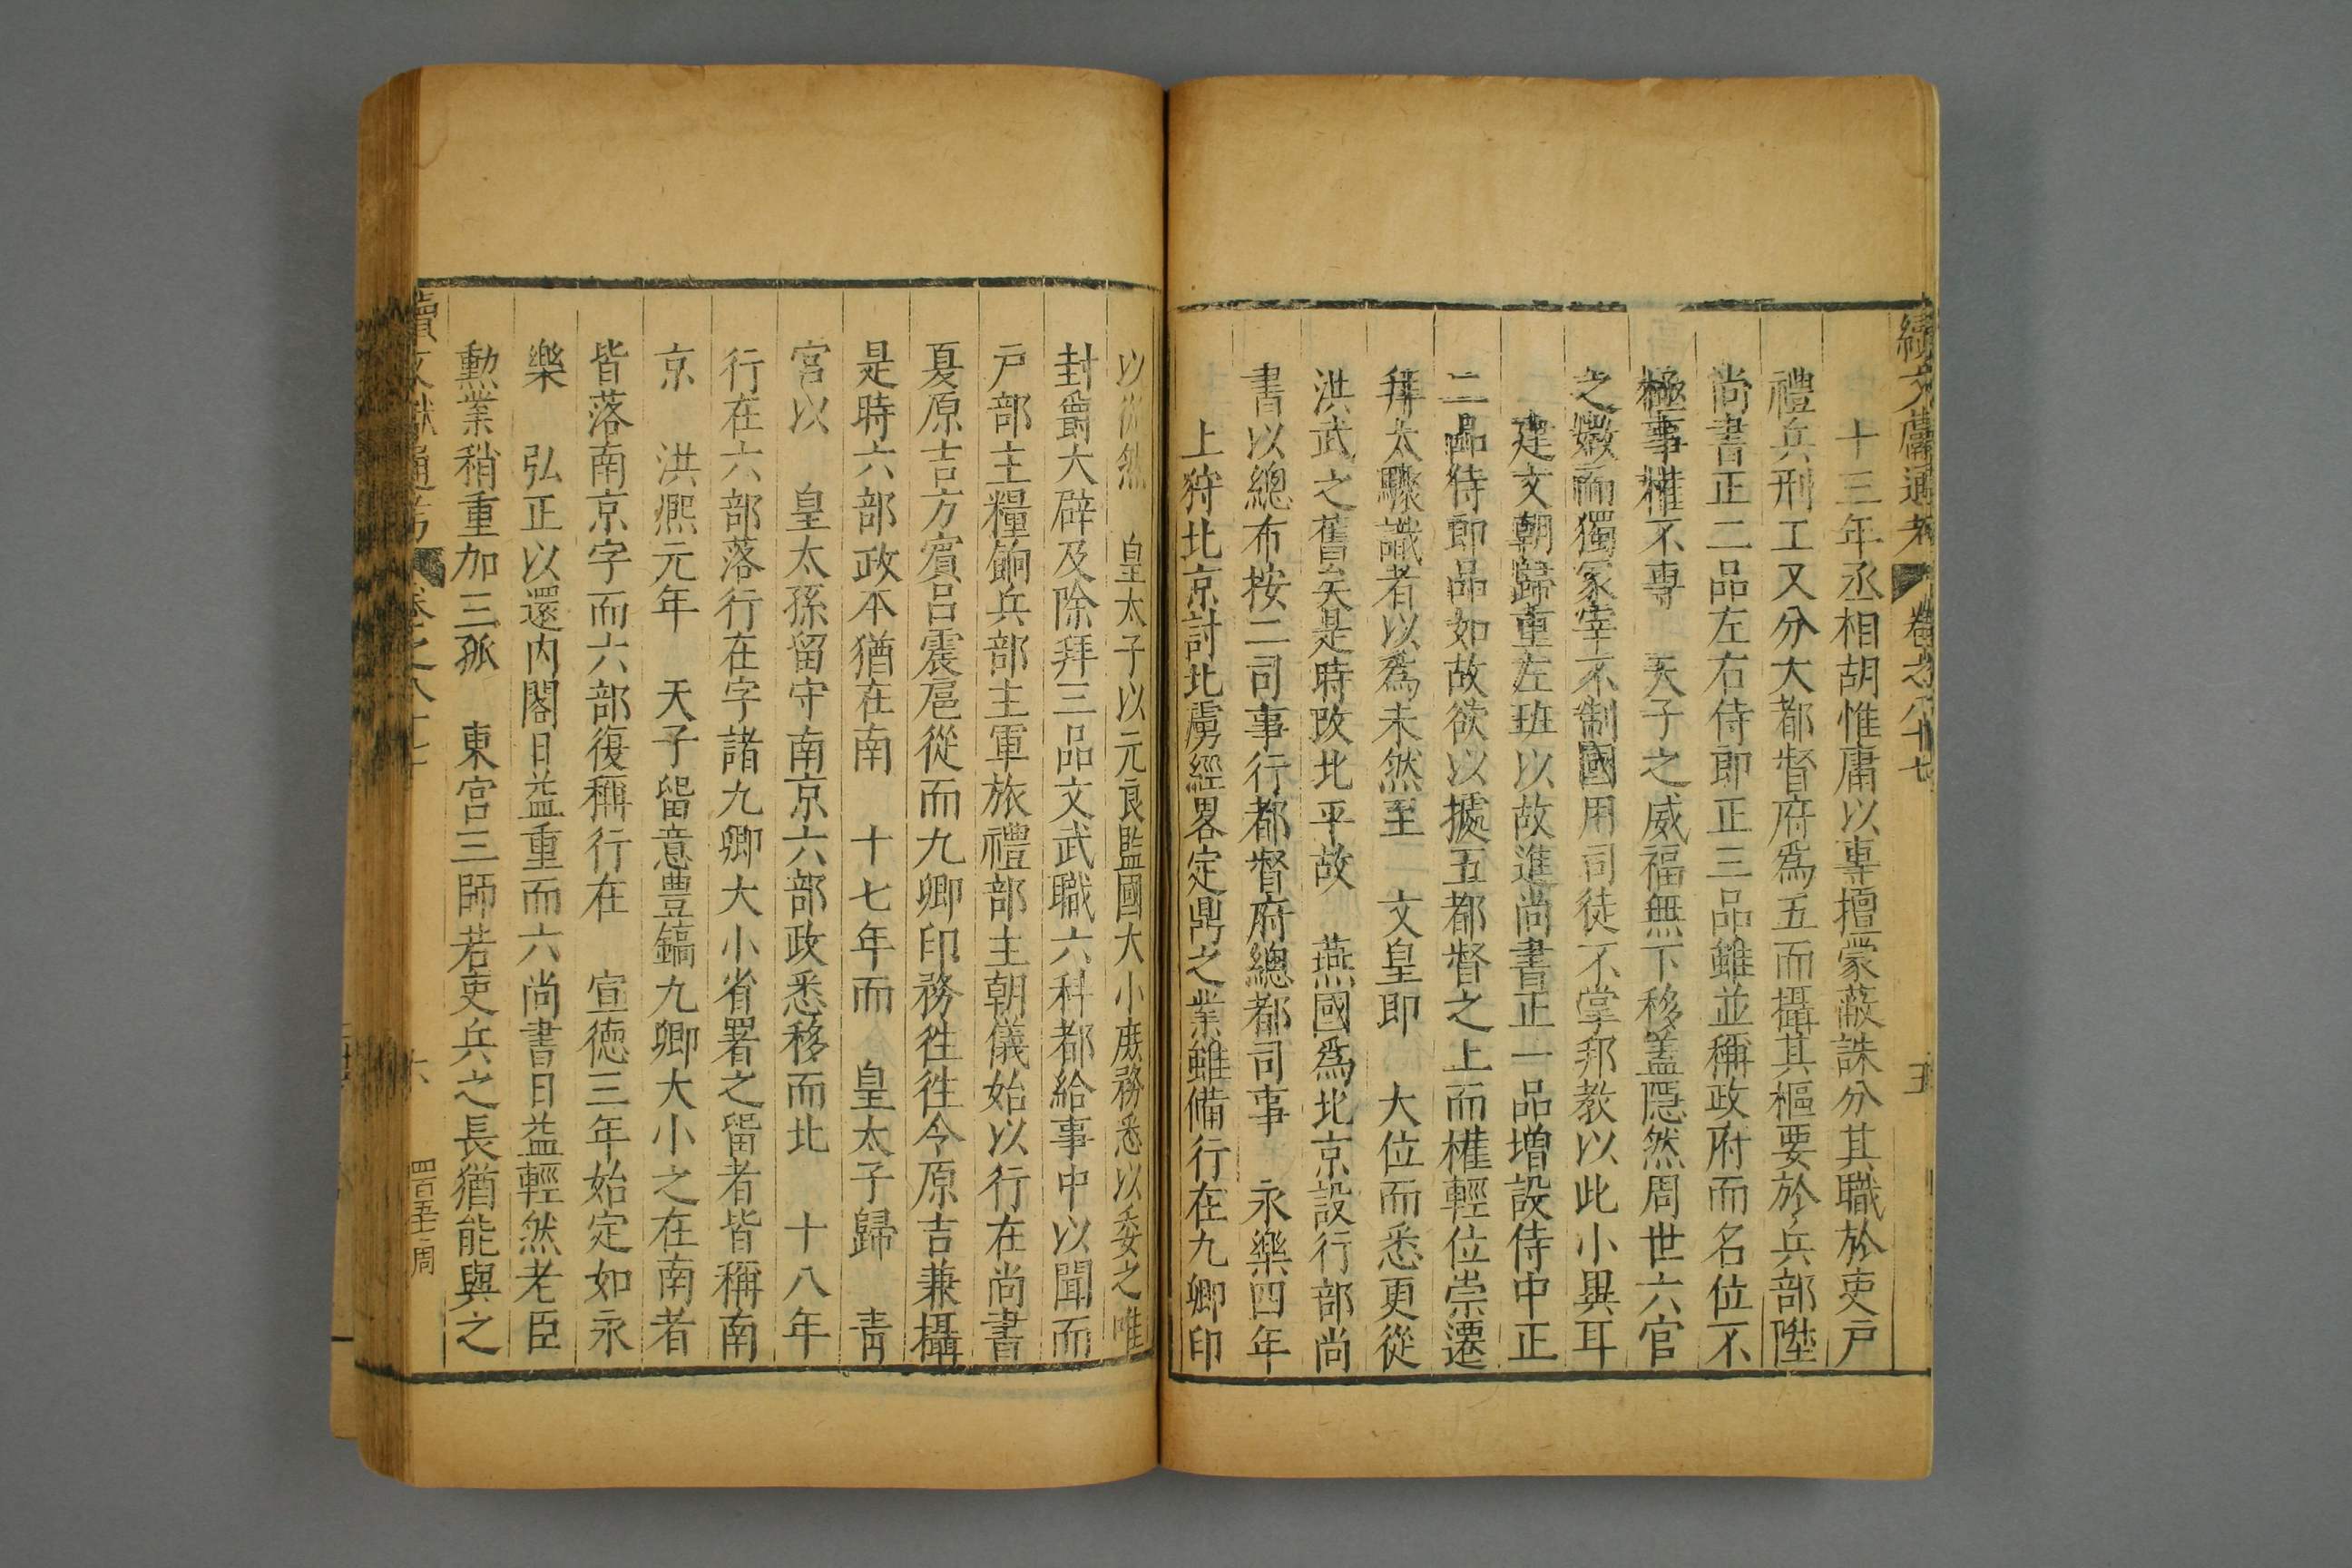 續文獻通考 卷之八十七 五
十三年丞相胡惟庸以專擅蒙蔽誅分其職於吏戶
禮兵刑工又分大都督府爲五而攝其樞要於兵部陞
尚書正二品左右侍郎正三品雖並稱政府而名位不
極事權不專 天子之威福無下移蓋隱然周世六官
之㣲而獨冢宰不制國用司徒不掌邦教以此小異耳
建文朝歸重左班以故進尚書正一品增設侍中正
二品侍郎品如故欲以據五都督之上而權輕位崇遷
拜太驟識者以爲未然至 文皇即 大位而悉更從
洪武之舊矣是時改北平故 燕國爲北京設行部尚
書以總布按二司事行都督府總都司事 永樂四年
上狩北京討北虜經畧定鼎之業雖備行在九卿印
以從然 皇太子以元良監國大小庶務悉以委之唯
封爵大辟及除拜三品文武職六科都給事中以聞而
戶部主糧餉兵部主軍旅禮部主朝儀始以行在尚書
夏原吉方賓呂震扈從而九卿印務徃徃令原吉兼攝
是時六部政本猶在南 十七年而 皇太子歸 青
宮以 皇太孫留守南京六部政悉移而北 十八年
行在六部落行在字諸九卿大小省署之留者皆稱南
京 洪熈元年 天子留意豊鎬九卿大小之在南者
皆落南京字而六部復稱行在 宣德三年始定如永
樂 弘正以還内閣日益重而六尚書日益輕然老臣
勲業稍重加三孤 東宮三師若吏兵之長猶能與之
續文獻通考 卷之八十七 六